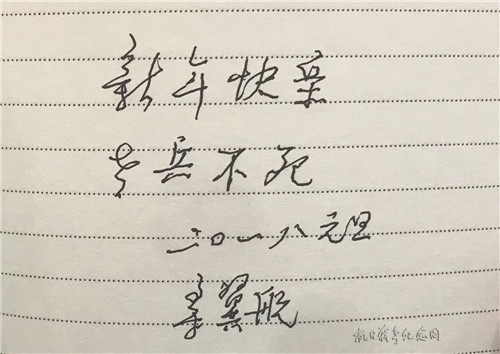 新年快樂
老兵不死
二〇一八元旦
翼航
抗日战争纪念网